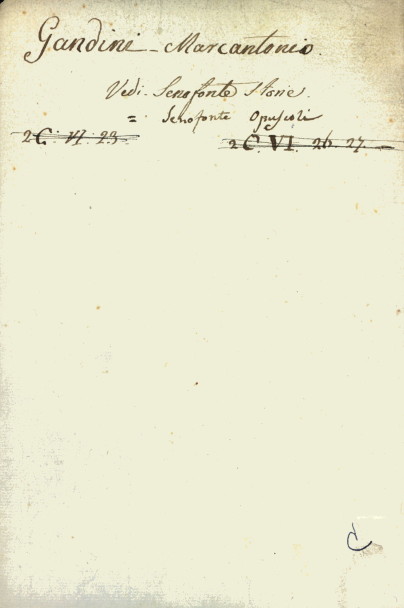 Gandini - Marcantonio.
Vedi - Senofonte Storie.
= Senofonte Opuscoli
2 C. VI. 23. 2 C VI. 26. 27.
C